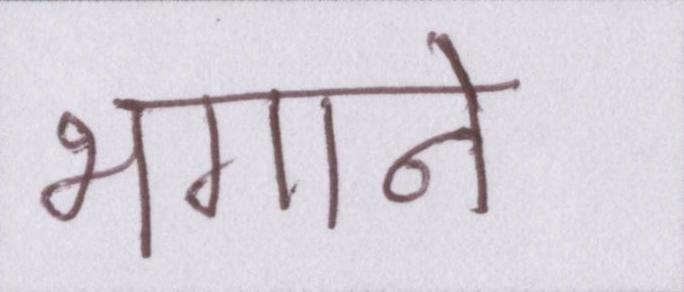 भगाने